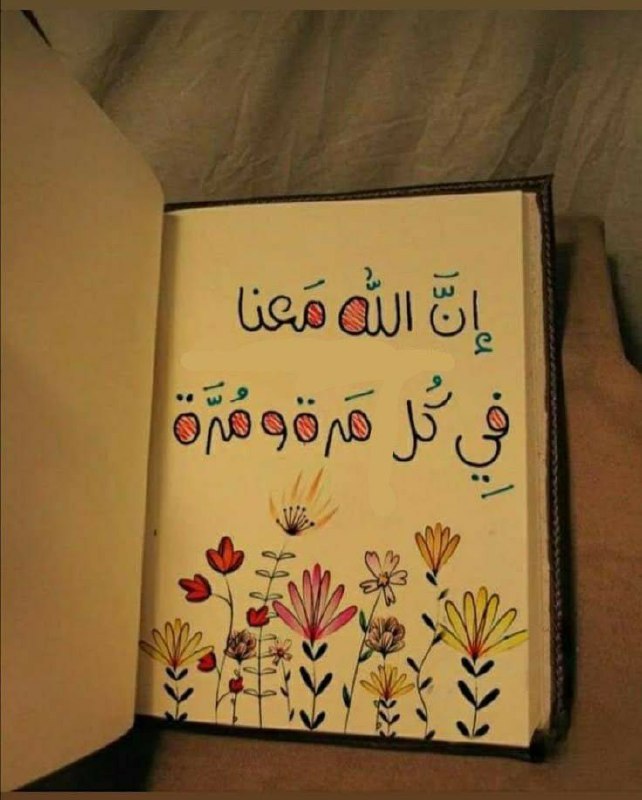 إنَّ اللّٰه مَعنا
فِي كُل مَرة و مُرَّة